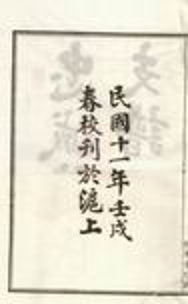 民國十一年壬戌
春校刊於滬上